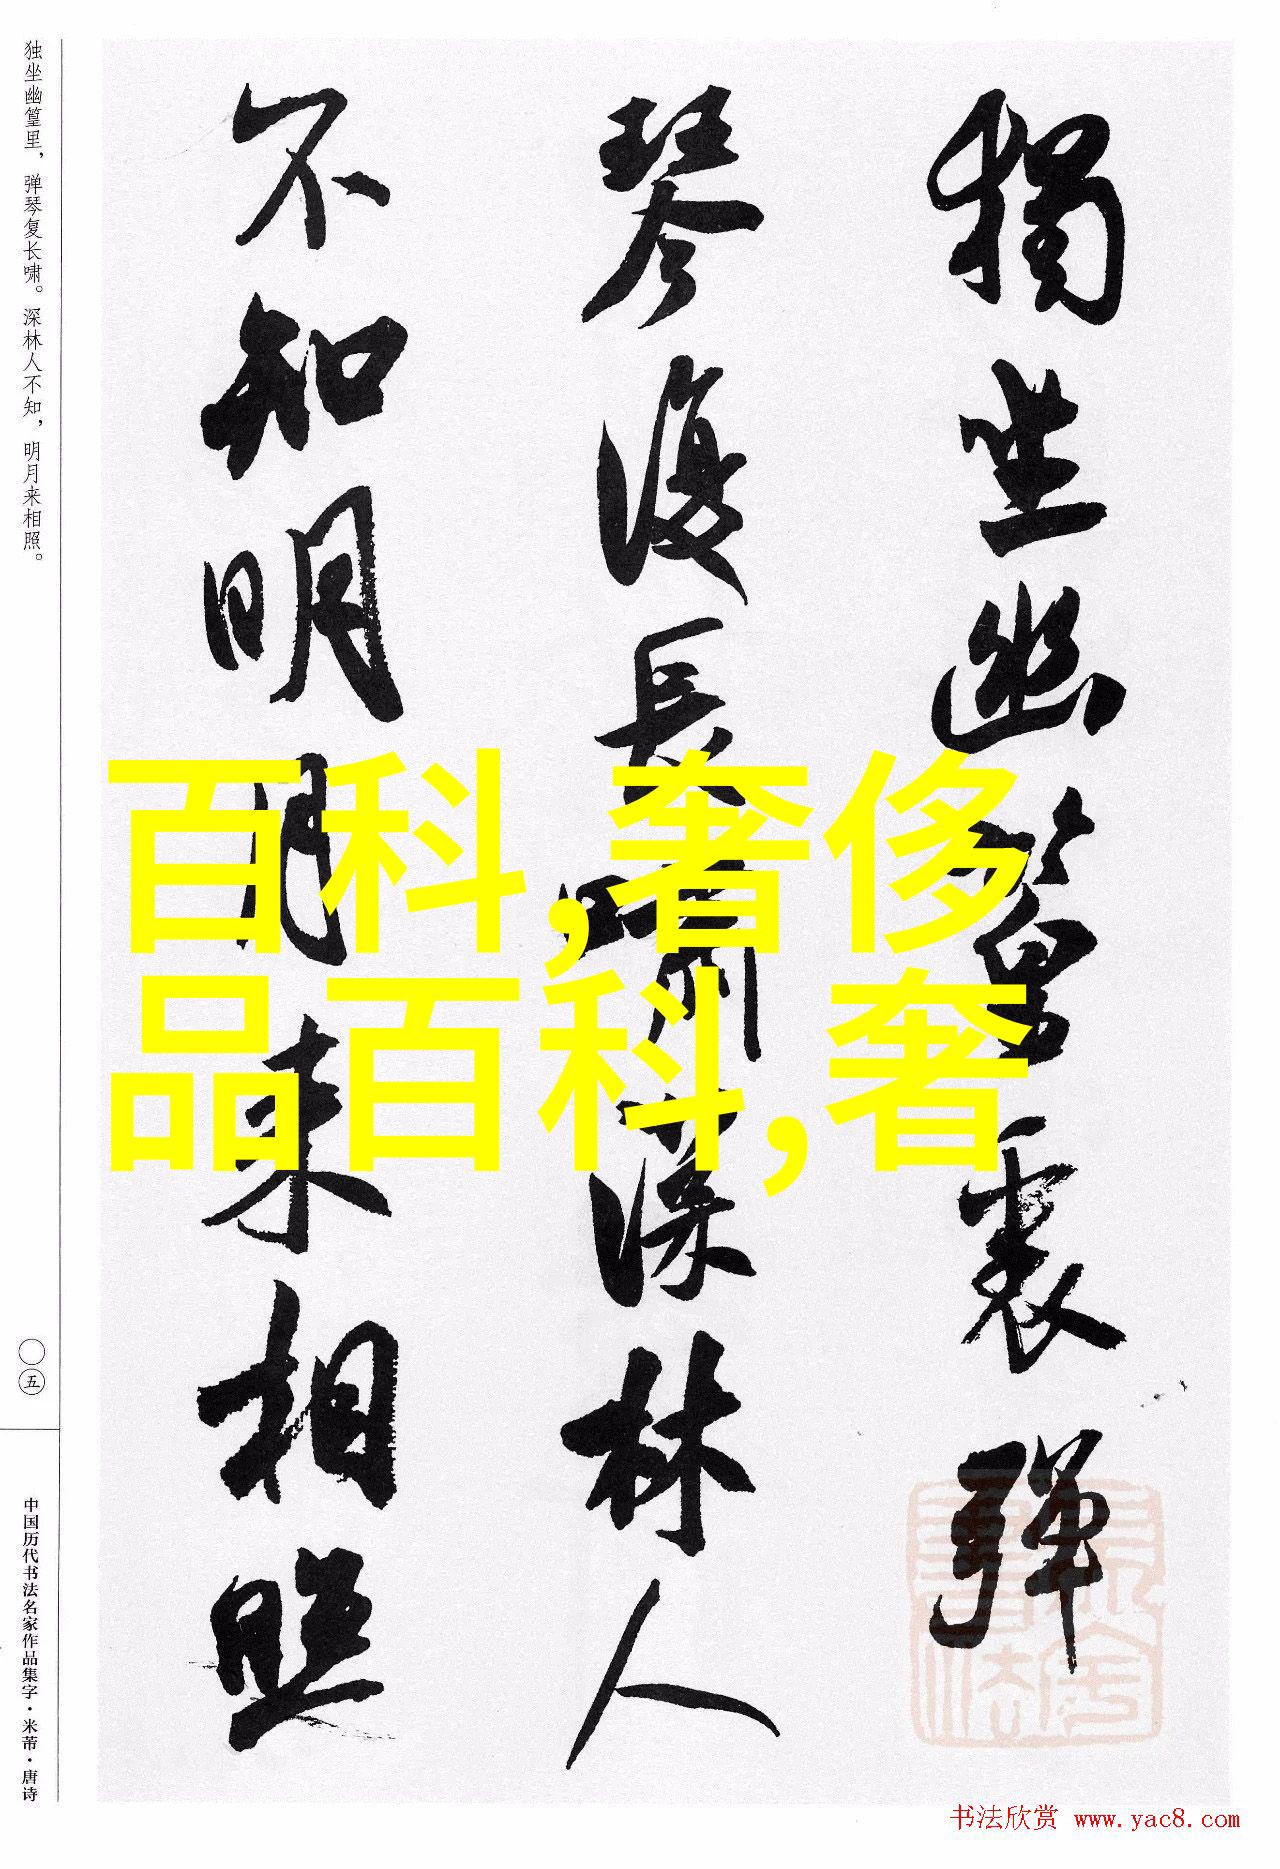 獨坐幽篁裏彈
琴復長嘯深林人
不知明月来相照
百科,奢侈
品百科,奢
独坐幽篁里，弹琴复长啸。深林人不知，明月来相照。
〇五
中国历代书法名家作品集字·米芾·唐诗
书法欣赏 www.yac8.com